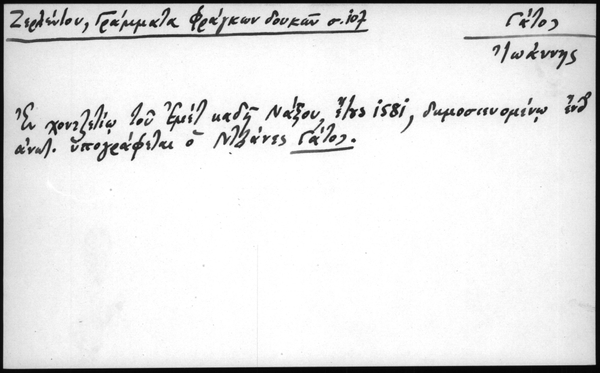 Ζερλέντου, Γράμματα Φράγκων δουκῶν σ. 107
Γάτος
Ἰωάννης
Ἐν χοντζετίῳ τοῦ Ἐμὲτ καδῆ Νάξου, ἔτους 1581, δημοσιευομένῳ ἔνθ
ἀνωτ. ὑπογράφεται ὁ Ντζάνες Γάτος.